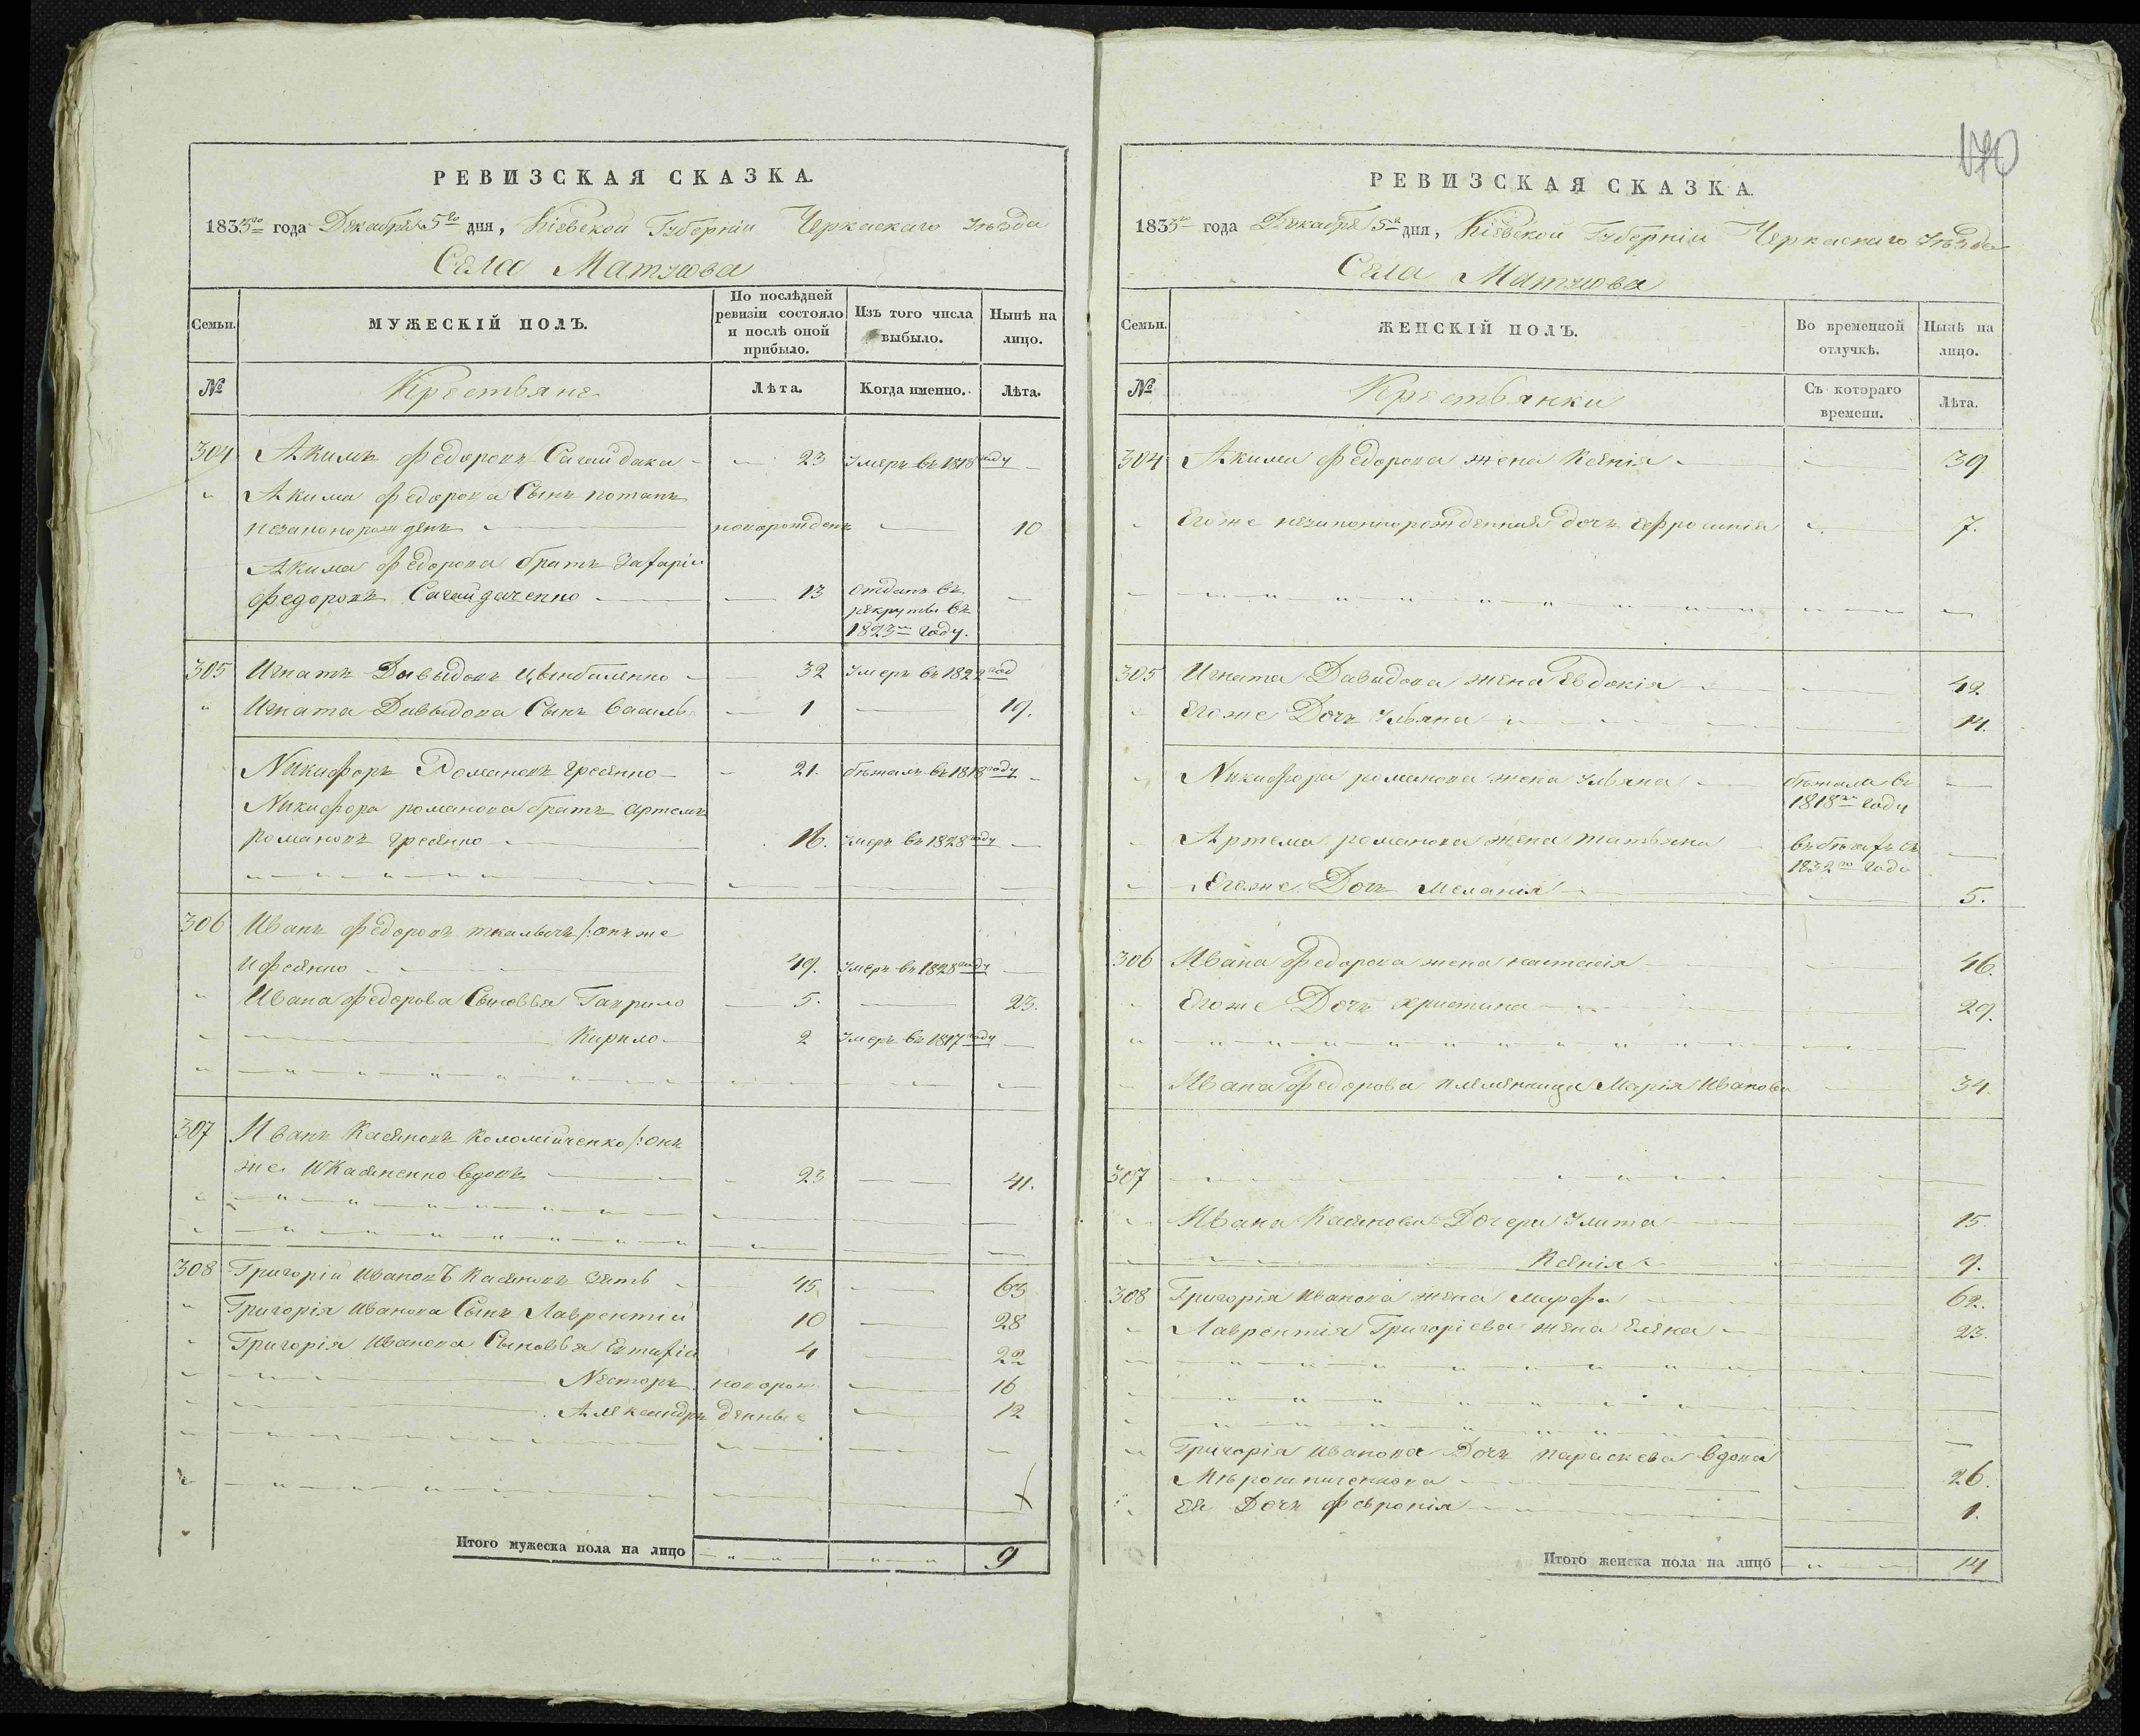 РЕВИЗСКАЯ СКАЗКА.
1835го года Декабря 5го дня, Кіевской Губерніи Черкаскаго Уѣзда
Села Матусова
Семьи.
МУЖЕСКІЙ ПОЛЪ.
По послѣдней
ревизіи состояло
и послѣ оной
прибыло.
Изъ того числа
выбыло.
Нынѣ на
лицо.
№
Крестьяне
Лѣта.
Когда именно.
Лѣта.
304 Акимъ Федоровъ Сагайдака 23 Умеръ въ 1818 году
Акима Федорова Сынъ потапъ
незаконорожденъ новорожденъ 10
Акима Федорова братъ Захарій
Федоровъ Сагайдаченко 13 отданъ въ
рекруты въ
1823м году.
305 Игнатъ Давыдовъ Цымбаленко 32 Умеръ въ 1822 год
Игната Давыдова Сынъ Василь 1 19.
Никифоръ Романовъ 21. бѣжалъ въ 1818 году
Никифора романова братъ Артемъ
романовъ 16. Умеръ въ 1828 году
306 Иванъ Федоровъ ткальичъ /: онъ же
49. Умеръ въ 1828 году
Ивана Федорова Сыновья Гаврило 5. 23.
Кирило 2 Умеръ въ 1817 году
307 Иванъ Касяновъ Коломійченко /: онъ
же и Касяненко вдовъ 23 41.
308 Григорій Ивановъ Касяновъ зять 45 63
Григорія Иванова Сынъ Лаврентій 10 28
Григорія Иванова Сыновья Евтихій 4 22
Несторъ новорож 16
Александръ денные 12
Итого мужеска пола на лицо 9
170
РЕВИЗСКАЯ СКАЗКА.
1835го года Декабря 5го дня, Кіевской Губерніи Черкаскаго Уѣзда
Села Матусова
Семьи.
ЖЕНСКІЙ ПОЛЪ.
Во временной
отлучкѣ.
Нынѣ на
лицо.
№
Крестьянки
Съ котораго
времени.
Лѣта.
304 Акима Федорова жена Ксенія 39
Егоже незаконнорожденная дочъ Ефросинія 7.
305 Игната Давыдова жена Евдокія 42
Егоже Дочъ Ульяна 14.
Никифора романова жена Ульяна бѣжала въ
1818м году
Артема романова жена татьяна въ бѣгахъ съ
1832го года
Егоже Дочъ Меланія 5.
306 Ивана Федорова жена настасія 46.
Егоже Дочъ христина 29.
Ивана Федорова племянница Марія Иванова 34.
307
Ивана Касянова Дочери Улита 15.
Ксенія 9.
308 Григорія Иванова жена марфа 62.
Лаврентія Григоріева жена Елена 23.
Григорія Иванова Дочъ параскева вдова
Мѣрошниченкова 26.
Ея Дочъ Февронія 1.
Итого женска пола на лицо 14